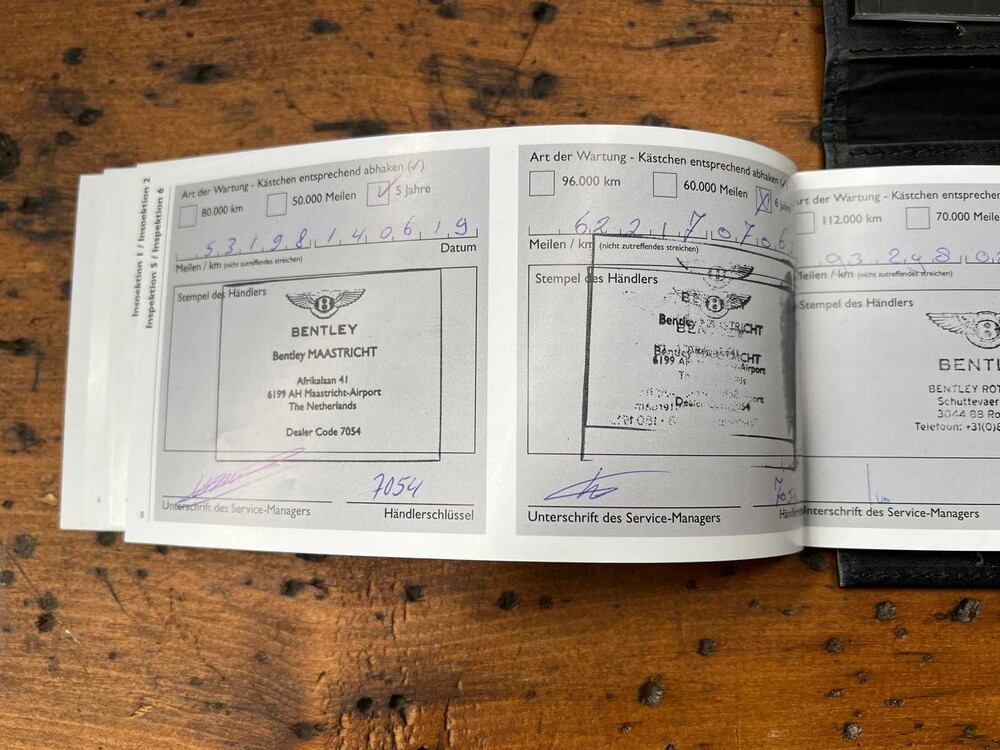 Inspektion 1 / Inspektion 2
Inspektion 5 / Inspektion 6
Art der Wartung - Kästchen entsprechend abhaken (✓)
80.000 km
50.000 Meilen
5 Jahre
53198 140619
Meilen / km (nicht zutreffendes streichen)
Datum
Stempel des Händlers
BENTLEY
Bentley MAASTRICHT
Afrikalaan 41
6199 AH Maastricht-Airport
The Netherlands
Dealer Code 7054
7054
Unterschrift des Service-Managers
Händlerschlüssel
8
6
Art der Wartung - Kästchen entsprechend abhaken
96.000 km
60.000 Meilen
6 Jahre
62217 0706
Meilen / km (nicht zutreffendes streichen)
Stempel des Händlers
6199
Unterschrift des Service-Managers
Art der Wartung - Kästchen entsprechen
112.000 km
70.000 Meile
Meilen / km (nicht zutreffendes streichen)
Stempel des Händlers
BENTL
BENTLEY ROT
Schuttevaer
3044 BB Ro
Telefoon: +31(0)8
Unterschrift des Service-Managers